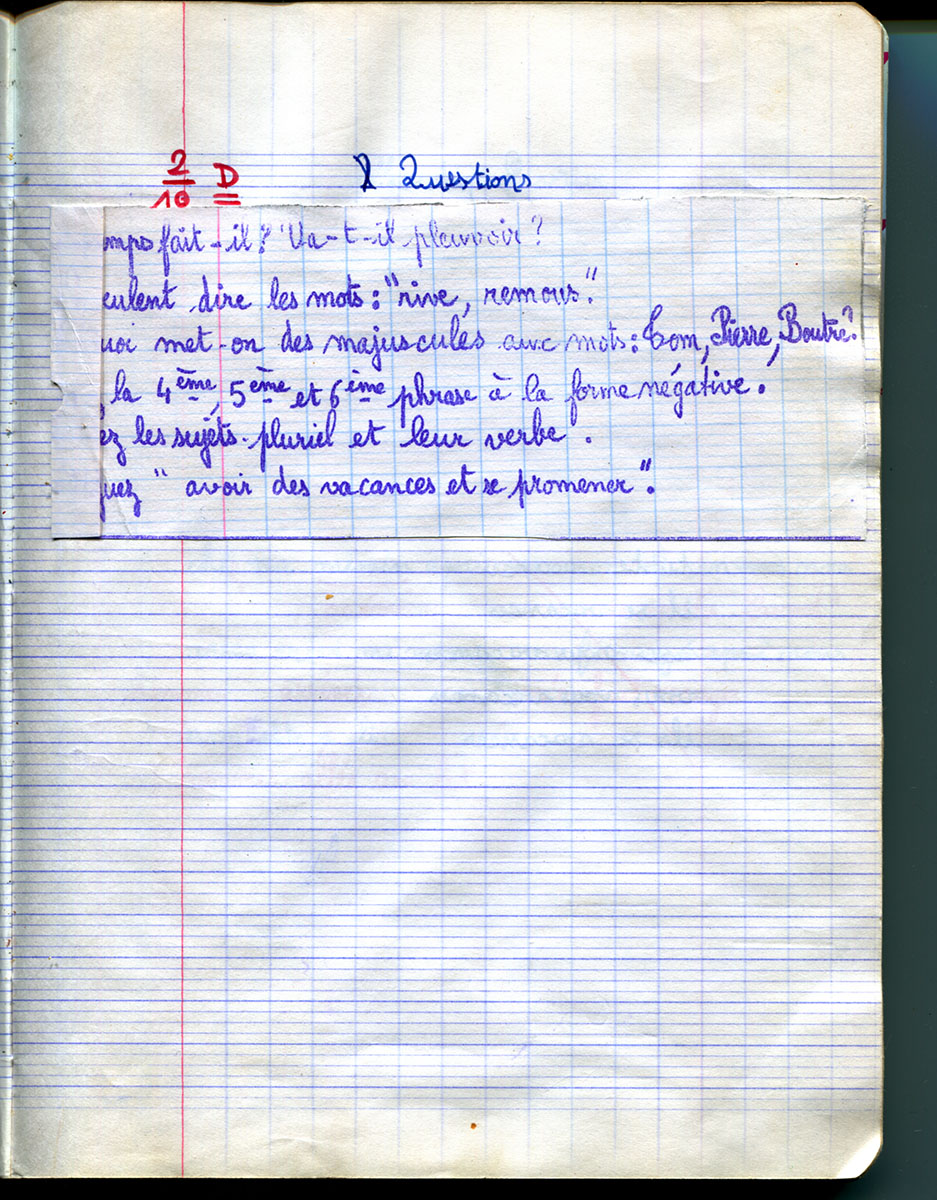 2/10 D Questions
mps fait-il? Va-t-il pleuvoir?
eulent dire les mots : "rive, remous".
uoi met-on des majuscules aux mots : Tom, Pierre, Boutre?
la 4ème, 5ème et 6ème phrase à la forme négative.
ez les sujets pluriel et leur verbe.
uez "avoir des vacances et se promener".